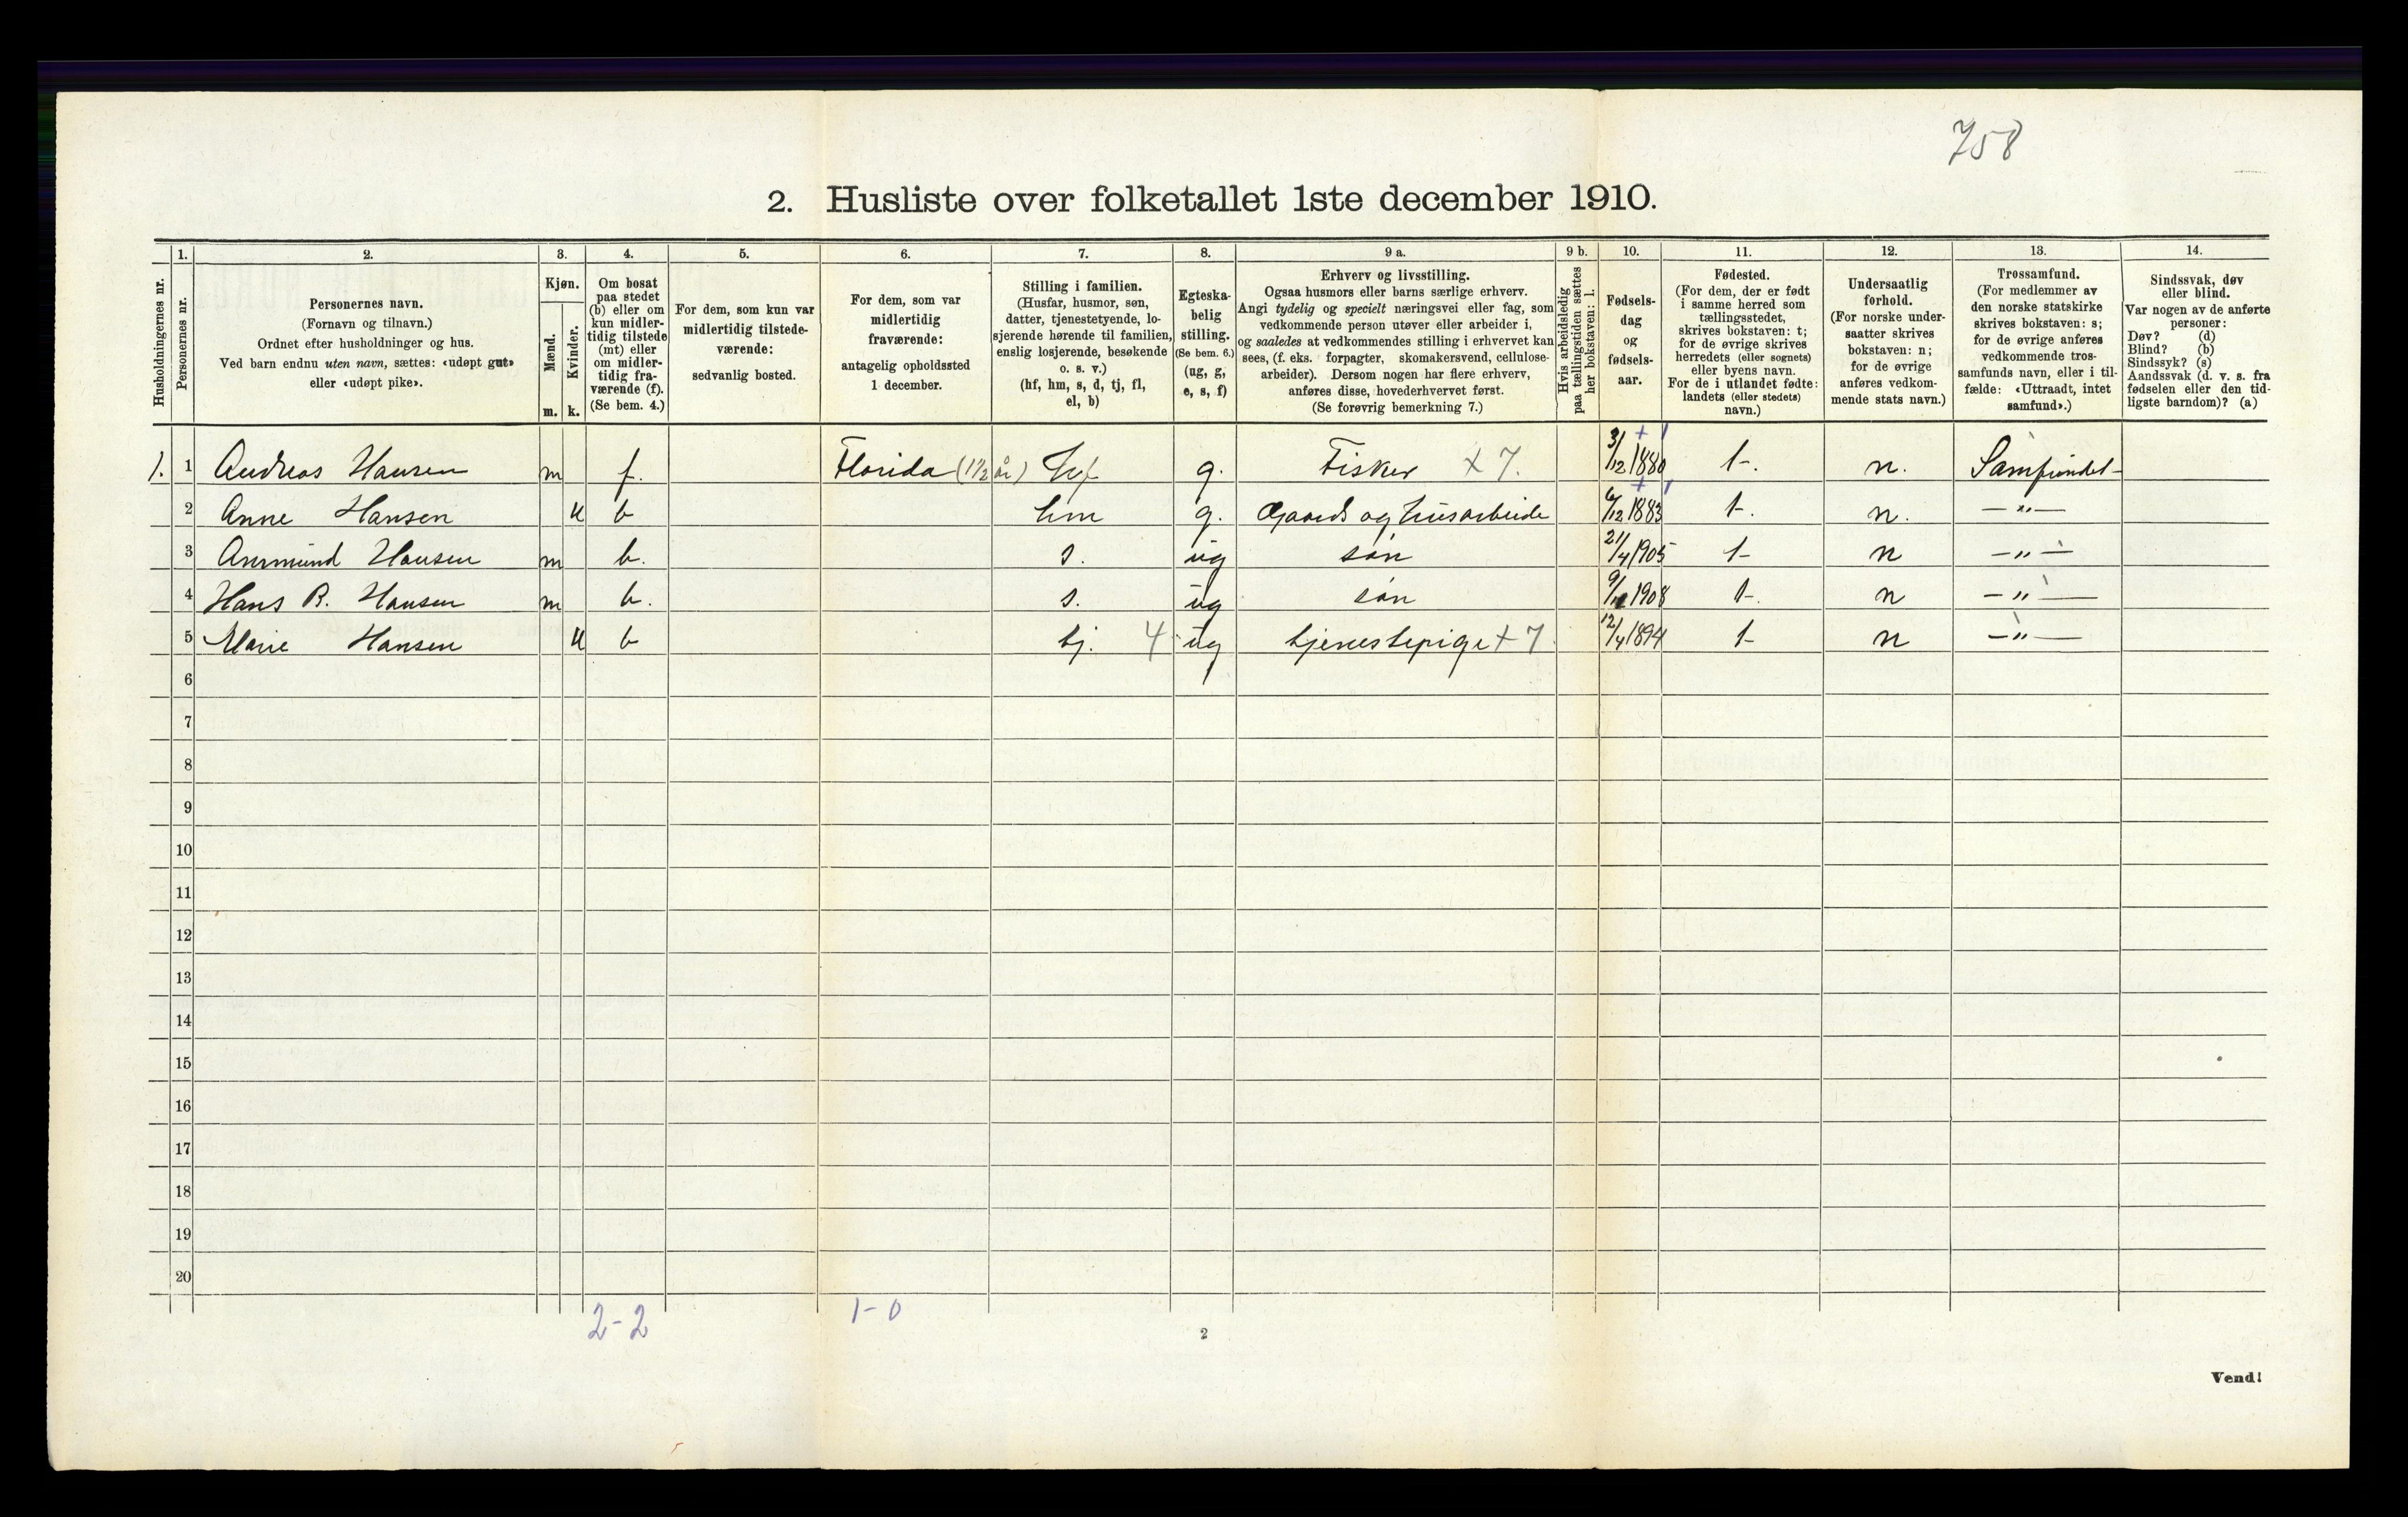 758
2. Husliste over folketallet 1ste december 1910.
Husholdningernes nr.
1.
Personernes nr.
2.
Personernes navn.
(Fornavn og tilnavn.)
Ordnet efter husholdninger og hus.
Ved barn endnu uten navn, sættes: «udøpt gut»
eller «udøpt pike».
3.
Kjøn.
Mænd.
Kvinder.
m. k.
4.
Om bosat
paa stedet
(b) eller om
kun midler-
tidig tilstede
(mt) eller
om midler-
tidig fra-
værende (f).
(Se bem. 4.)
5.
For dem, som kun var
midlertidig tilstede-
værende:
sedvanlig bosted.
6.
For dem, som var
midlertidig
fraværende:
antagelig opholdssted
1 december.
7.
Stilling i familien.
(Husfar, husmor, søn,
datter, tjenestetyende, lo-
sjerende hørende til familien,
enslig losjerende, besøkende
o. s. v.)
(hf, hm, s, d, tj, fl,
el, b)
8.
Egteska-
belig
stilling.
(Se bem. 6.)
(ug, g,
e, s, f)
9 a.
Erhverv og livsstilling.
Ogsaa husmors eller barns særlige erhverv.
Angi tydelig og specielt næringsvei eller fag, som
vedkommende person utøver eller arbeider i,
og saaledes at vedkommendes stilling i erhvervet kan
sees, (f. eks. forpagter, skomakersvend, cellulose-
arbeider). Dersom nogen har flere erhverv,
anføres disse, hovederhvervet først.
(Se forøvrig bemerkning 7.)
9 b.
Hvis arbeidsledig
paa tællingstiden sættes
her bokstaven: l.
10.
Fødsels-
dag
og
fødsels-
aar.
11.
Fødested.
(For dem, der er født
i samme herred som
tællingsstedet,
skrives bokstaven: t;
for de øvrige skrives
herredets (eller sognets)
eller byens navn.
For de i utlandet fødte:
landets (eller stedets)
navn.)
12.
Undersaatlig
forhold.
(For norske under-
saatter skrives
bokstaven: n;
for de øvrige
anføres vedkom-
mende stats navn.)
13.
Trossamfund.
(For medlemmer av
den norske statskirke
skrives bokstaven: s;
for de øvrige anføres
vedkommende tros-
samfunds navn, eller i til-
fælde: «Uttraadt, intet
samfund».)
14.
Sindssvak, døv
eller blind.
Var nogen av de anførte
personer:
Døv? (d)
Blind? (b)
Sindssyk? (s)
Aandssvak (d. v. s. fra
fødselen eller den tid-
ligste barndom)? (a)
1. 1 Andreas Hansen m f. Florida (1½ år) hf g. Fisker x 7. 3/12 1880 t. n. Samfundet
2 Anne Hansen k b hm g. Gaards og husarbeide 6/12 1883 t. n. —"—
3 Anmund Hansen m b. s. ug søn 21/4 1905 t n —"—
4 Hans B. Hansen m b. s. ug søn 1908 t. n —"—
5 Marie Hansen k b tj. 4 ug tjenestepige + 7 12/4 1894 t n —"—
6
7
8
9
10
11
12
13
14
15
16
17
18
19
20
2-2
1-0
2
Vend!